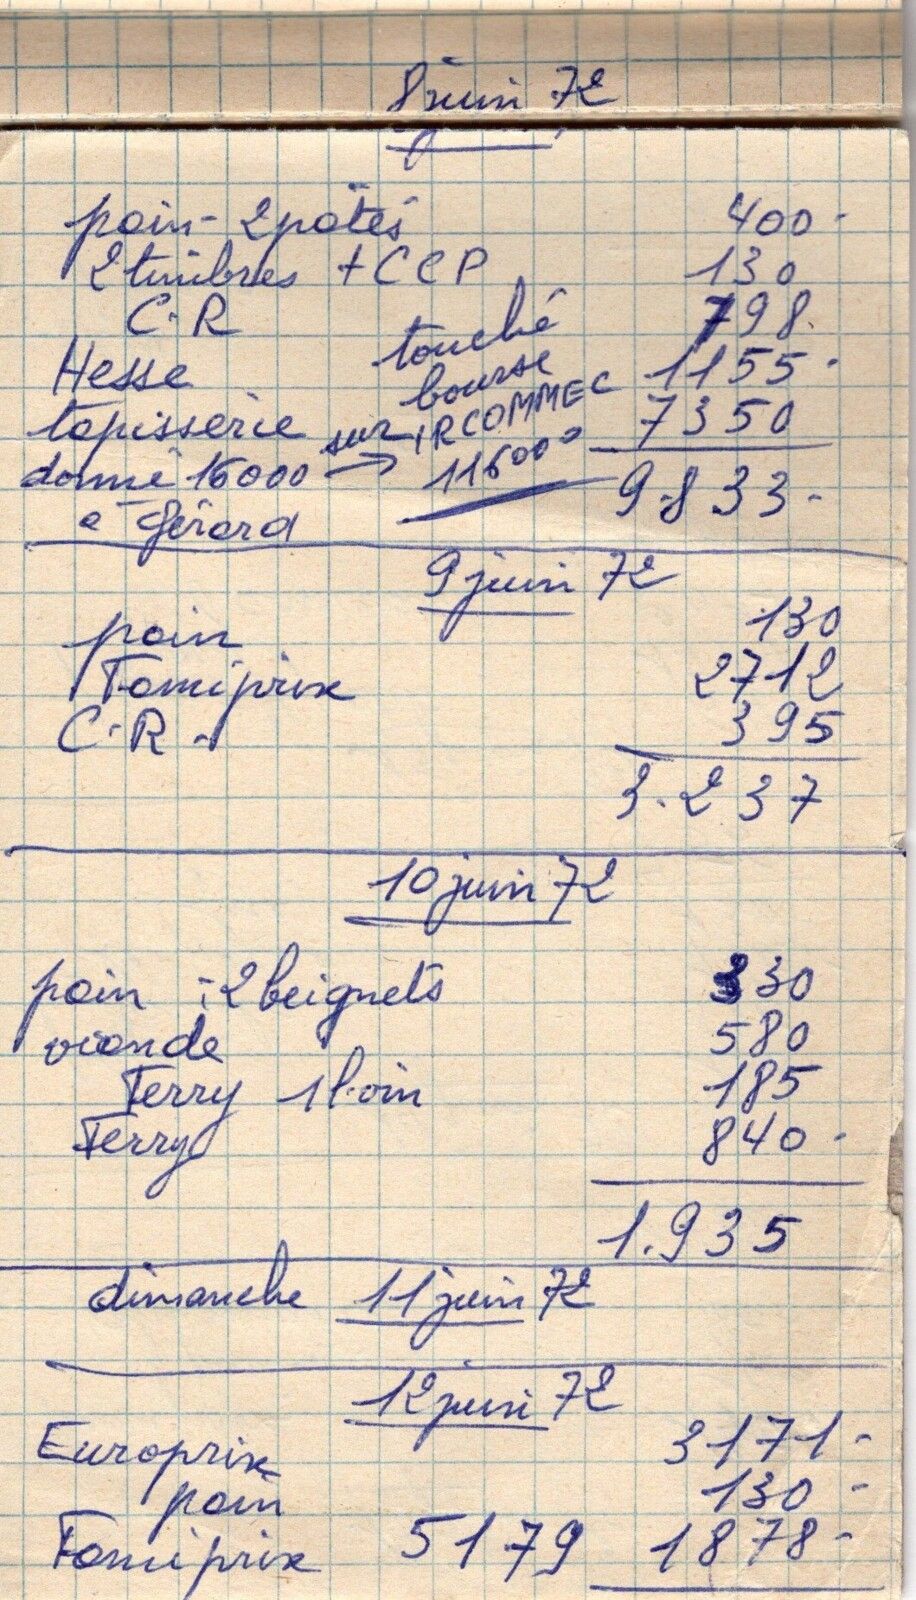 8 juin 72
pain - 2 patés 400 -
2 timbres + CCP 130
C.R 798.
Hesse 1155 -
tapisserie 7350
donné 16000
à Gérard
touché
bourse
sur IRCOMMEC
→ 116000
9.833 -
9 juin 72
pain 130
Famiprix 2712
C.R. 395
3.237
10 juin 72
pain : 2 beignets 330
viande 580
Ferry 1 l. vin 185
Ferry 840 -
1.935
dimanche 11 juin 72
12 juin 72
Europrix 3171 -
pain 130 -
Famiprix 5179 1878 -